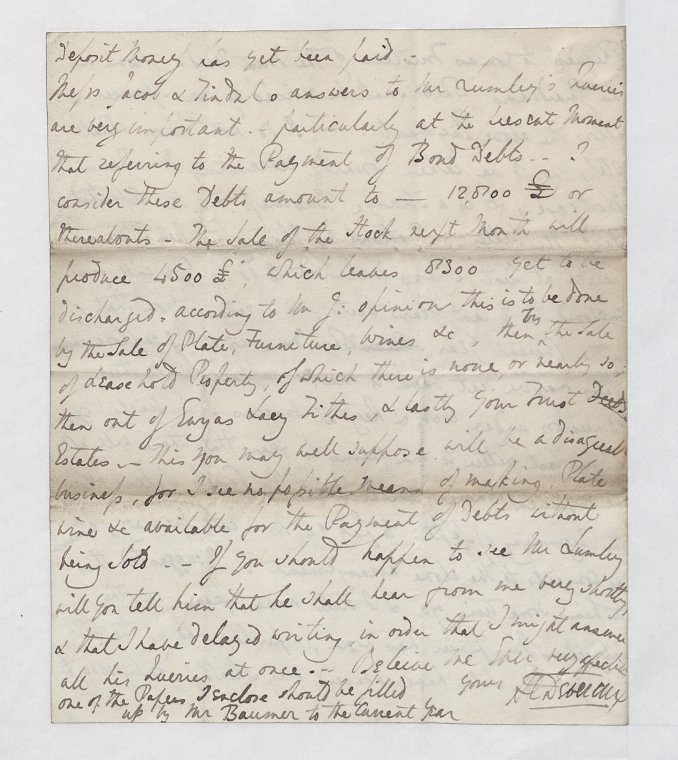 Deposit Money has yet been paid
Messrs Jacob & Tindal's answers to Mr Lumley's Queries
are very important - particularly at the present Moment
that referring to the Payment of Bond Debts - - I
consider these Debts amount to — 12,800 £ or
thereabouts - The Sale of the Stock next Month will
produce 4500 £, which leaves 8300 yet to be
discharged. according to Mr J: opinion this is to be done
by the Sale of Plate, Furniture, Wines &c, then by the Sale
of Leasehold Property, of which there is none, or nearly so,
then out of Ewyas Lacy Tithes, & lastly your Trust
Estates - This you may well suppose will be a disagreeable
business, for I see no possible means of making Plate
wine &c available for the Payment of Debts without
being Sold - If you should happen to see Mr Lumley
will you tell him that he shall hear from me very shortly,
& that I have delayed writing in order that I might answer
all his Queries at once. - Beleive me Ever very
yours
one of the Papers I enclose should be filled
up by Mr Baumer to the Current Year